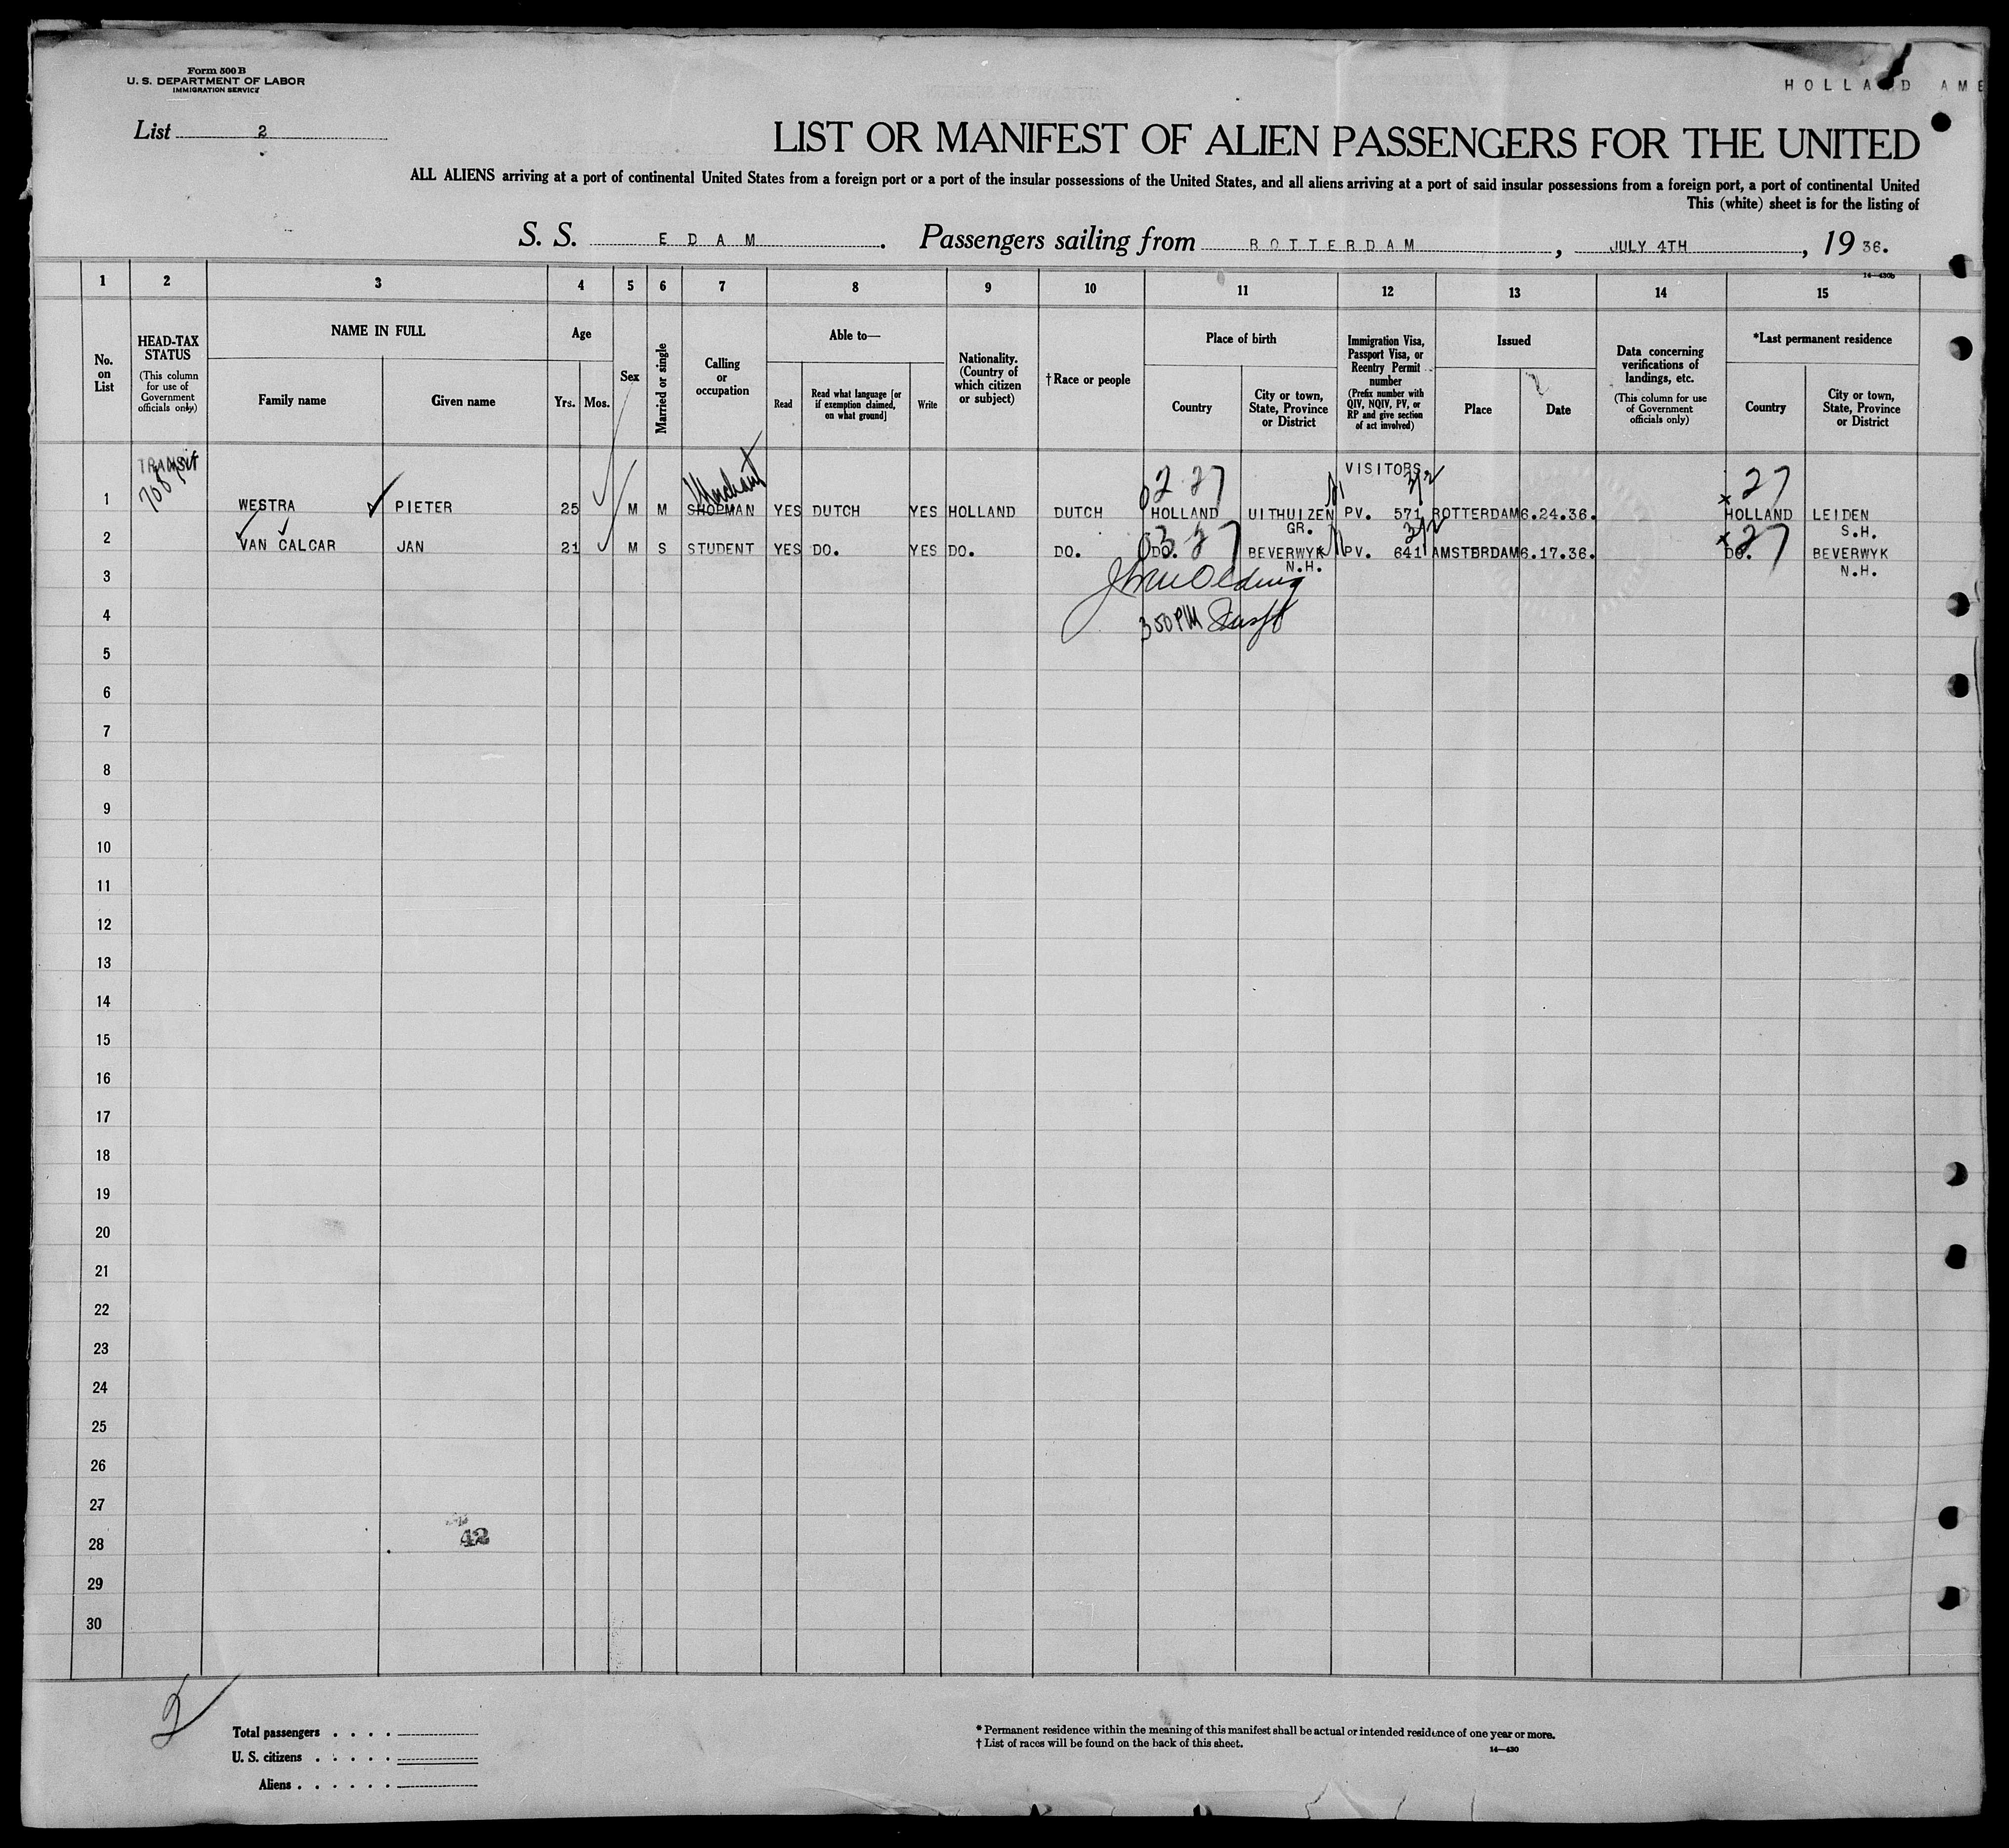 Form 500 B
U. S. DEPARTMENT OF LABOR
IMMIGRATION SERVICE
HOLLAND AME
List 2
LIST OR MANIFEST OF ALIEN PASSENGERS FOR THE UNITED
ALL ALIENS arriving at a port of continental United States from a foreign port or a port of the insular possessions of the United States, and all aliens arriving at a port of said insular possessions from a foreign port, a port of continental United
This (white) sheet is for the listing of
S. S. EDAM. Passengers sailing from ROTTERDAM, JULY 4TH, 1936.
14—430b
1 2 3 4 5 6 7 8 9 10 11 12 13 14 15
No. on List
HEAD-TAX STATUS (This column for use of Government officials only)
NAME IN FULL
Family name Given name
Age
Yrs. Mos.
Sex
Married or single
Calling or occupation
Able to—
Read Read what language [or if exemption claimed, on what ground] Write
Nationality. (Country of which citizen or subject)
† Race or people
Place of birth
Country City or town, State, Province or District
Immigration Visa, Passport Visa, or Reentry Permit number (Prefix number with QIV, NQIV, PV, or RP and give section of act involved)
Issued
Place Date
Data concerning verifications of landings, etc. (This column for use of Government officials only)
*Last permanent residence
Country City or town, State, Province or District
TRANSIT Merchant 2 27 VISITORS 3/2 27
1 WESTRA PIETER 25 M M SHOPMAN YES DUTCH YES HOLLAND DUTCH HOLLAND UITHUIZEN PV. 571 ROTTERDAM 6.24.36. HOLLAND LEIDEN
GR. S.H.
3 27 3/2 27
2 VAN CALCAR JAN 21 M S STUDENT YES DO. YES DO. DO. DO. BEVERWYK PV. 641 AMSTERDAM 6.17.36. DO. BEVERWYK
N.H. N.H.
3
350 PM
4
5
6
7
8
9
10
11
12
13
14
15
16
17
18
19
20
21
22
23
24
25
26
27
42
28
29
30
2
Total passengers . . . .
U. S. citizens . . . . .
Aliens . . . . . .
* Permanent residence within the meaning of this manifest shall be actual or intended residence of one year or more.
† List of races will be found on the back of this sheet.
14—430